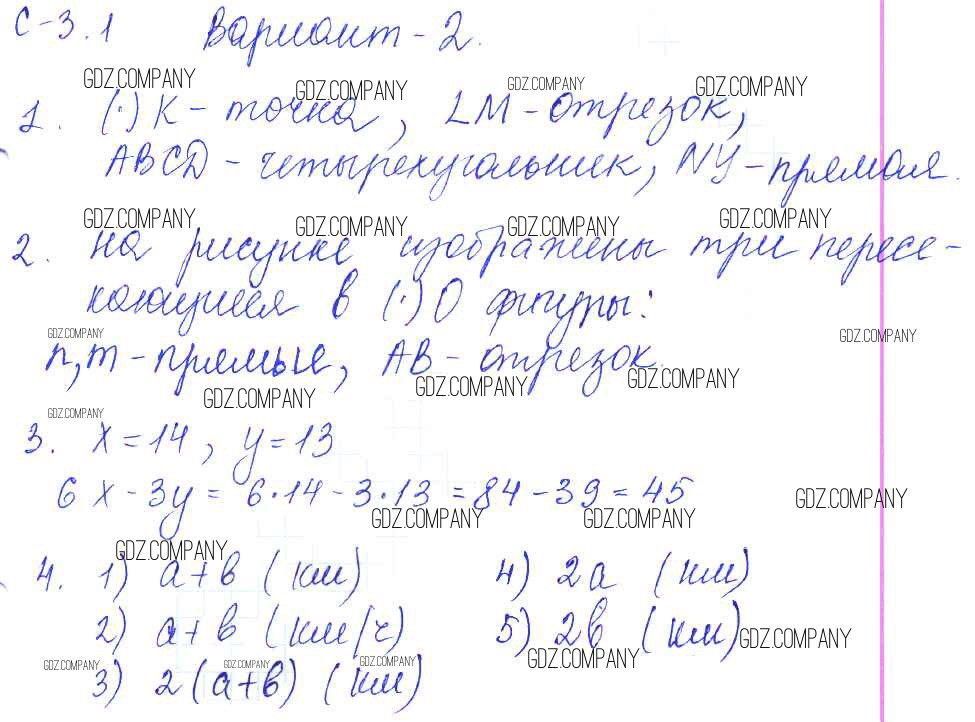 С-3.1 Вариант-2.
GDZ.COMPANY GDZ.COMPANY GDZ.COMPANY GDZ.COMPANY
1. (·)К - точка, LM - отрезок,
ABCD - четырехугольник, NY - прямая.
GDZ.COMPANY GDZ.COMPANY GDZ.COMPANY GDZ.COMPANY
2. На рисунке изображены три пересе-
кающиеся в (·)O фигуры:
GDZ.COMPANY GDZ.COMPANY
n, m - прямые, AB - отрезок.
GDZ.COMPANY GDZ.COMPANY GDZ.COMPANY
GDZ.COMPANY
3. x = 14, y = 13
6x - 3y = 6·14 - 3·13 = 84 - 39 = 45
GDZ.COMPANY GDZ.COMPANY GDZ.COMPANY
GDZ.COMPANY
4. 1) a+b (км) 4) 2a (км)
2) a+b (км/ч) 5) 2b (км)
GDZ.COMPANY GDZ.COMPANY
GDZ.COMPANY GDZ.COMPANY GDZ.COMPANY
3) 2(a+b) (км)